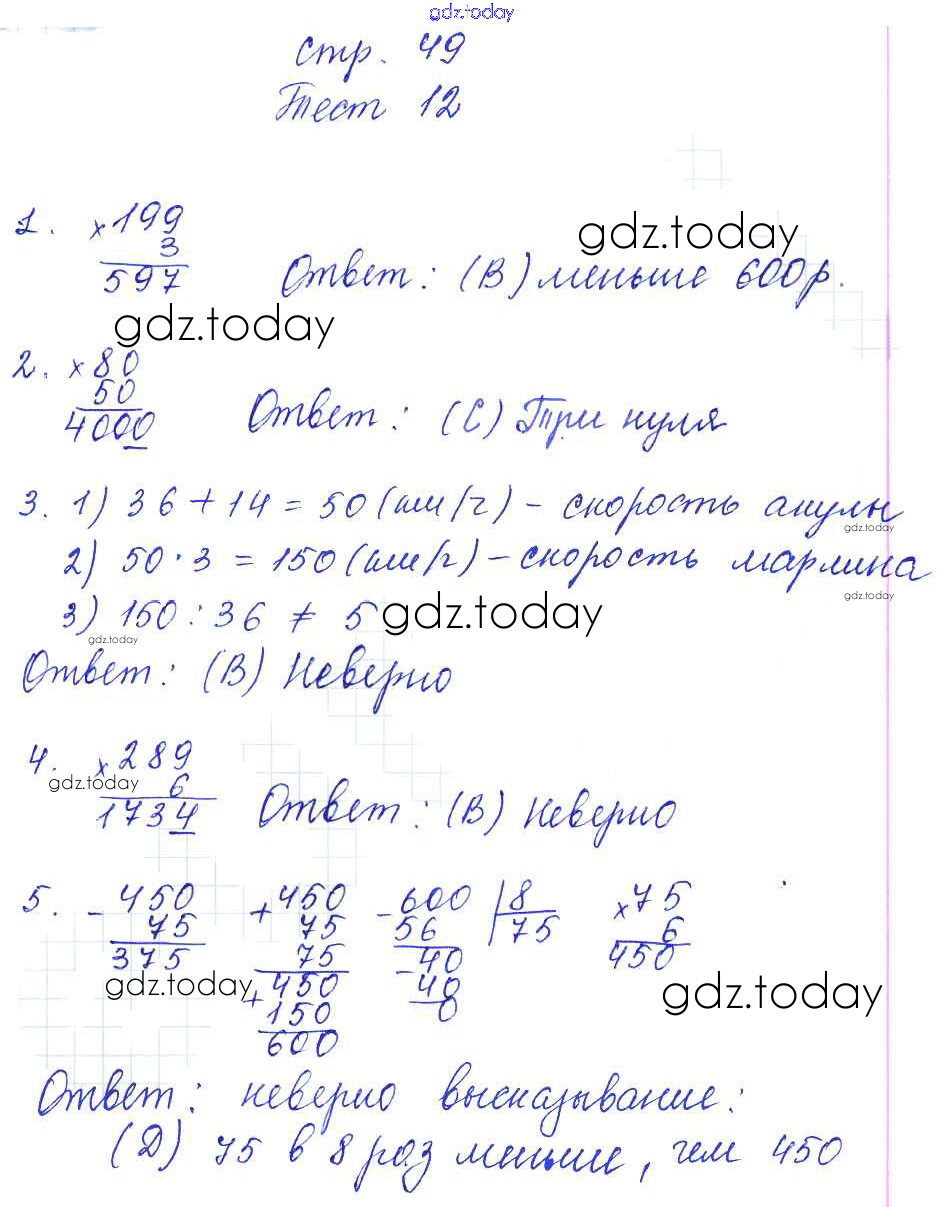 gdz.today
стр. 49
Тест 12
1. × 199
3
597 Ответ: (В) меньше 600 р.
gdz.today
gdz.today
2. × 80
50
4000 Ответ: (С) Три нуля
3. 1) 36 + 14 = 50 (км/ч) - скорость акулы
gdz.today
2) 50 · 3 = 150 (км/ч) - скорость марлина
gdz.today
3) 150 : 36 ≠ 5
gdz.today
gdz.today
Ответ: (В) Неверно
4. × 289
gdz.today
6
1734 Ответ: (В) Неверно
5. - 450 + 450 - 600 | 8 × 75
75 75 56 75 6
375 75 - 40 450
gdz.today + 450 40 gdz.today
150 0
600
Ответ: неверно высказывание:
(D) 75 в 8 раз меньше, чем 450